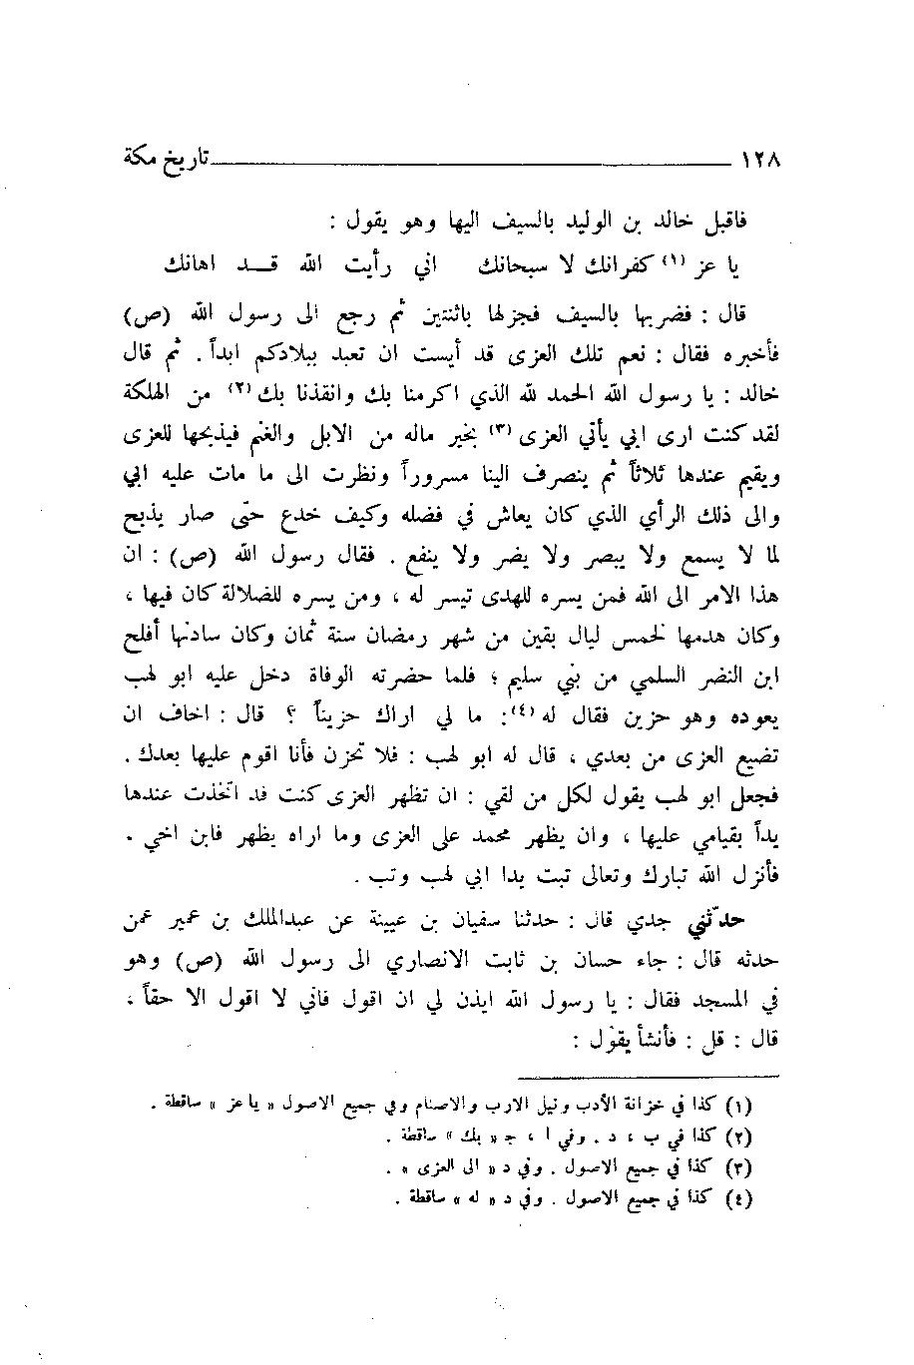 ١٢٨ تاريخ مكة
فاقبل خالد بن الوليد بالسيف اليها وهو يقول :
يا عز (١) كفرانك لا سبحانك اني رأيت الله قد اهانك
قال : فضربها بالسيف فجزلها باثنتين ثم رجع الى رسول الله (ص)
فأخبره فقال : نعم تلك العزى قد أيست ان تعبد ببلادكم ابداً . ثم قال
خالد : يا رسول الله الحمد لله الذي اكرمنا بك وانقذنا بك (٢) من الهلكة
لقد كنت ارى ابي يأتي العزى (٣) بخير ماله من الابل والغنم فيذبحها للعزى
ويقيم عندها ثلاثاً ثم ينصرف الينا مسروراً ونظرت الى ما مات عليه ابي
والى ذلك الرأي الذي كان يعاش في فضله وكيف خدع حتى صار يذبح
لما لا يسمع ولا يبصر ولا يضر ولا ينفع . فقال رسول الله (ص) : ان
هذا الامر الى الله فمن يسره للهدى تيسر له ، ومن يسره للضلالة كان فيها ،
وكان هدمها لخمس ليال بقين من شهر رمضان سنة ثمان وكان سادنها أفلح
ابن النضر السلمي من بني سليم ؛ فلما حضرته الوفاة دخل عليه ابو لهب
يعوده وهو حزين فقال له (٤): ما لي اراك حزيناً ؟ قال : اخاف ان
تضيع العزى من بعدي ، قال له ابو لهب : فلا تحزن فأنا اقوم عليها بعدك .
فجعل ابو لهب يقول لكل من لقي : ان تظهر العزى كنت قد اتخذت عندها
يداً بقيامي عليها ، وان يظهر محمد على العزى وما اراه يظهر فابن اخي .
فأنزل الله تبارك وتعالى تبت يدا ابي لهب وتب .
حدثني جدي قال : حدثنا سفيان بن عيينة عن عبدالملك بن عمير عمن
حدثه قال : جاء حسان بن ثابت الانصاري الى رسول الله (ص) وهو
في المسجد فقال : يا رسول الله ايذن لي ان اقول فاني لا اقول الا حقاً ،
قال : قل : فأنشأ يقول :
(١) كذا في خزانة الأدب ونيل الارب والاصنام وفي جميع الاصول « يا عز » ساقطة .
(٢) كذا في ب ، د . وفي ا ، ج « بك » ساقطة .
(٣) كذا في جميع الاصول . وفي د « الى العزى » .
(٤) كذا في جميع الاصول . وفي د « له » ساقطة .